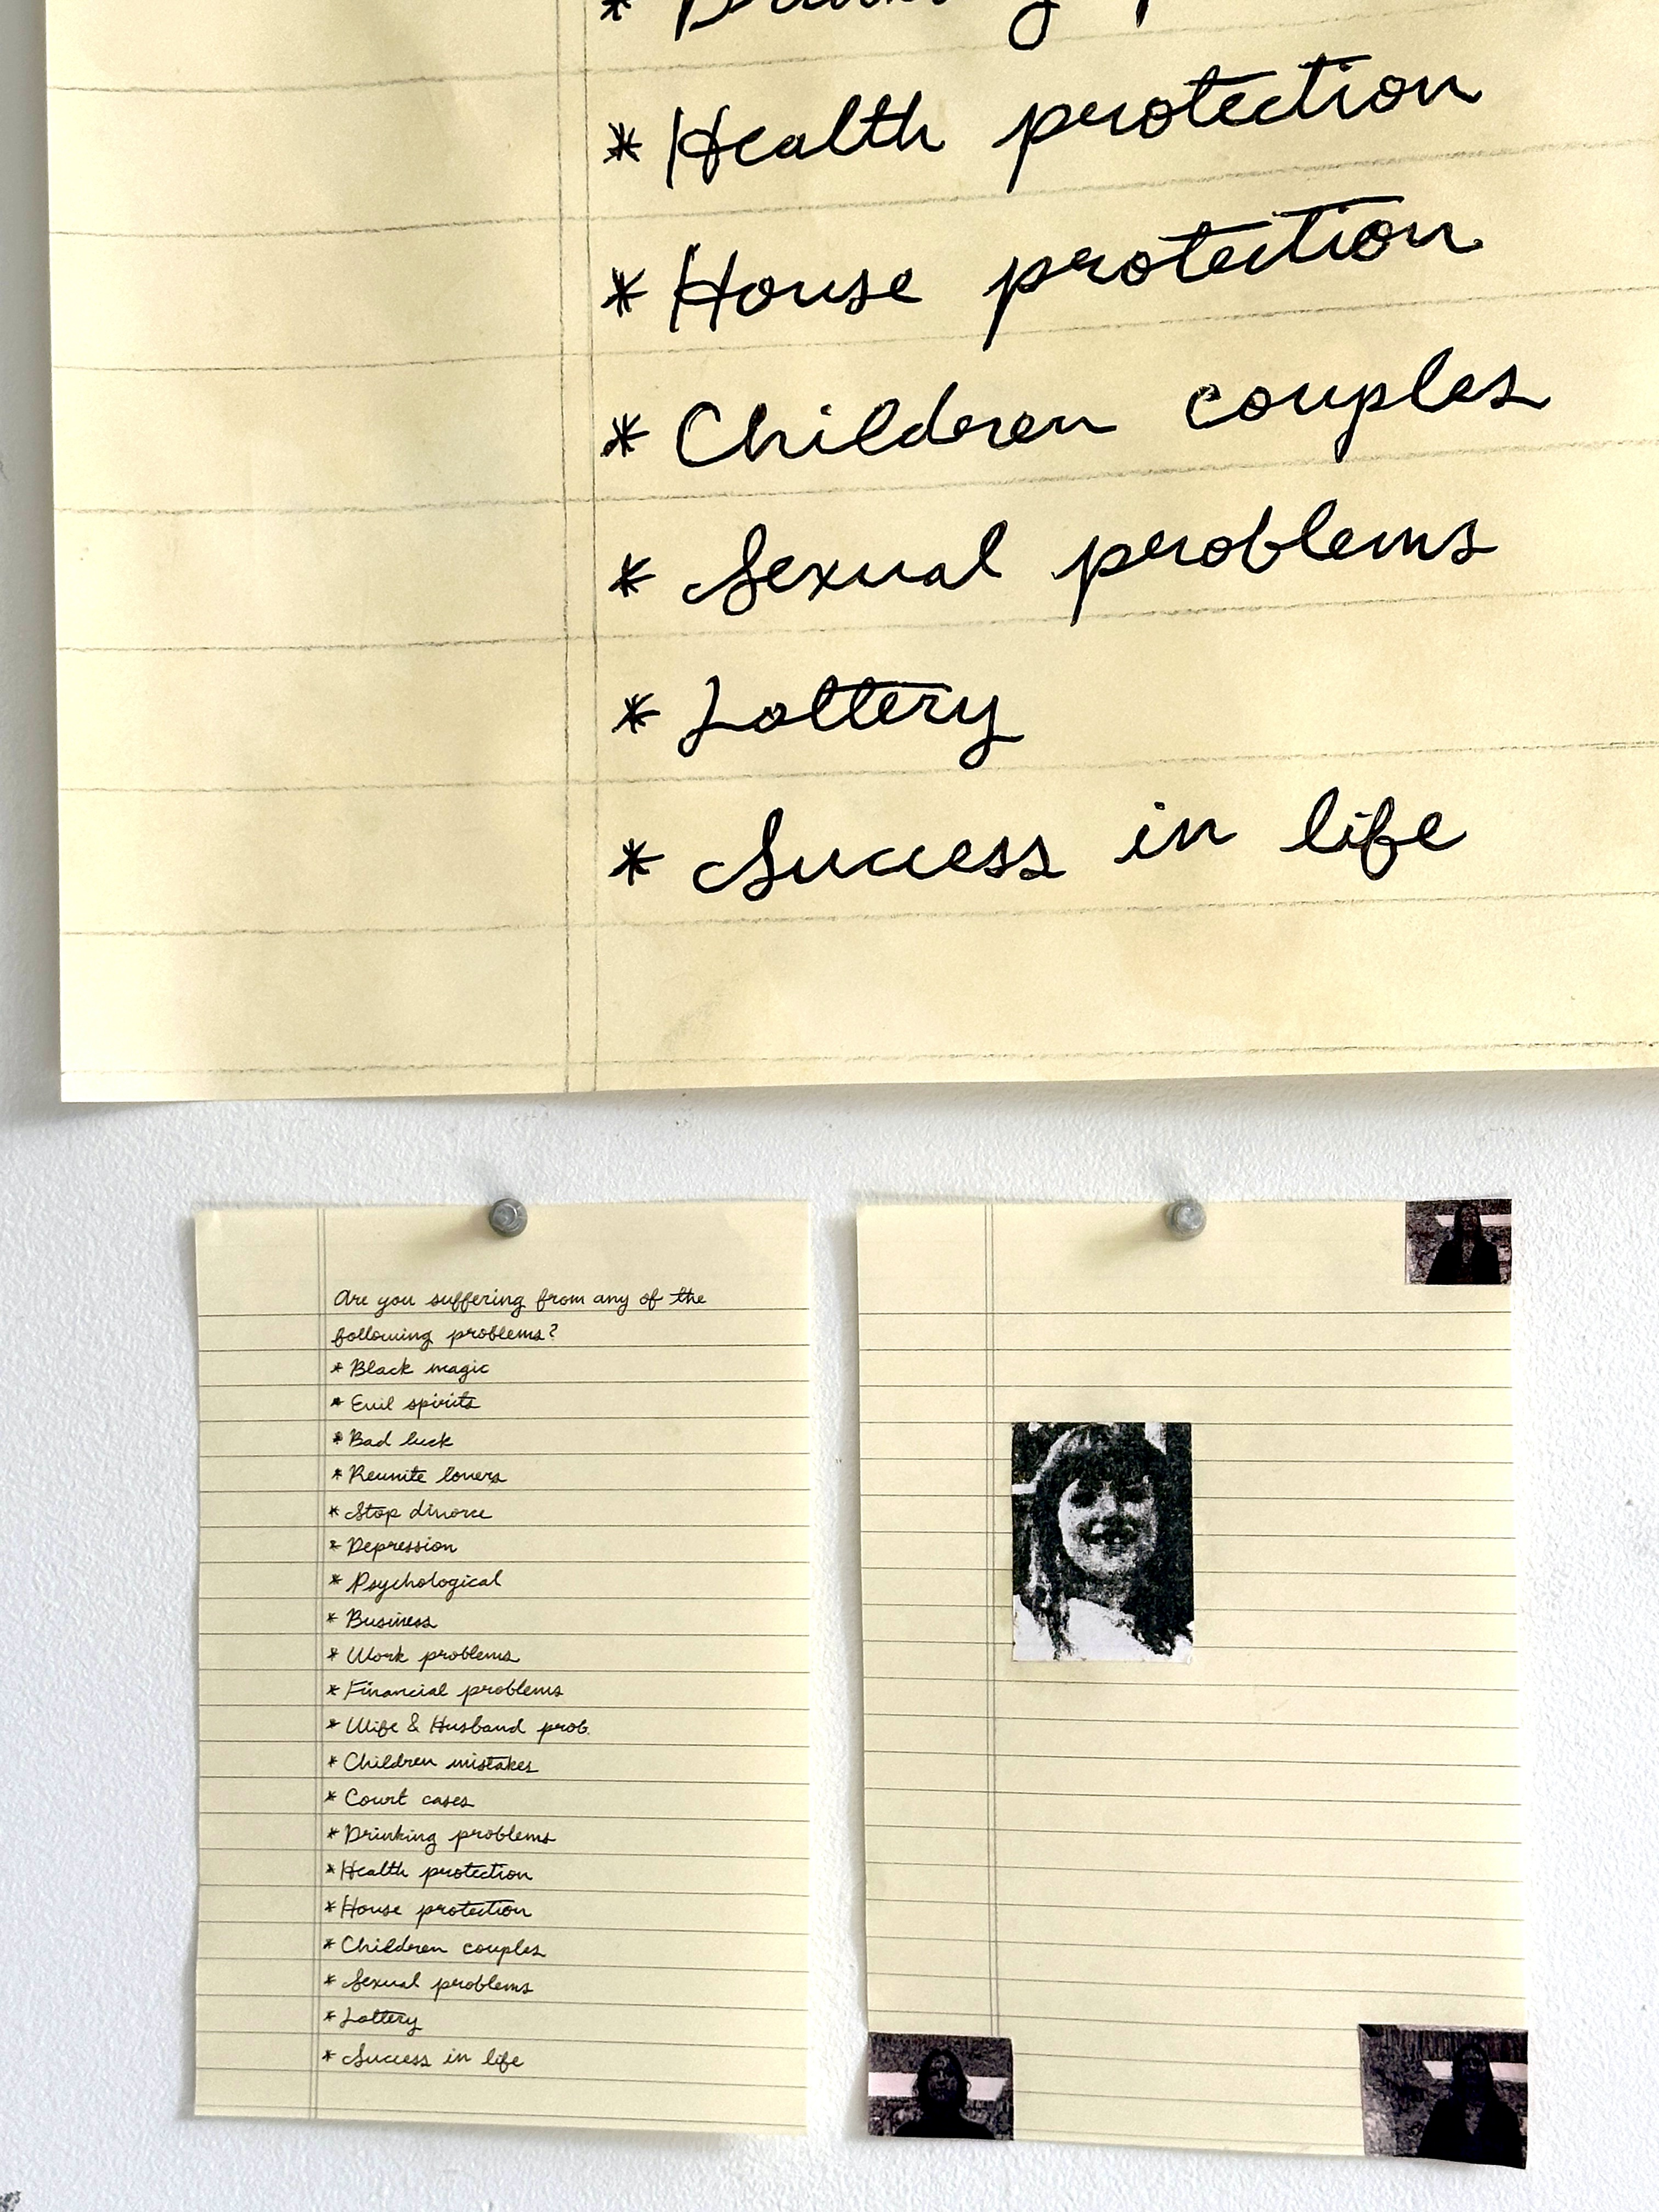 * Health protection
* House protection
* Children couples
* Sexual problems
* Lottery
* Success in life
Are you suffering from any of the
following problems?
* Black magic
* Evil spirits
* Bad luck
* Reunite lovers
* Stop divorce
* Depression
* Psychological
* Business
* Work problems
* Financial problems
* Wife & Husband prob.
* Children mistakes
* Court cases
* Drinking problems
* Health protection
* House protection
* Children couples
* Sexual problems
* Lottery
* Success in life